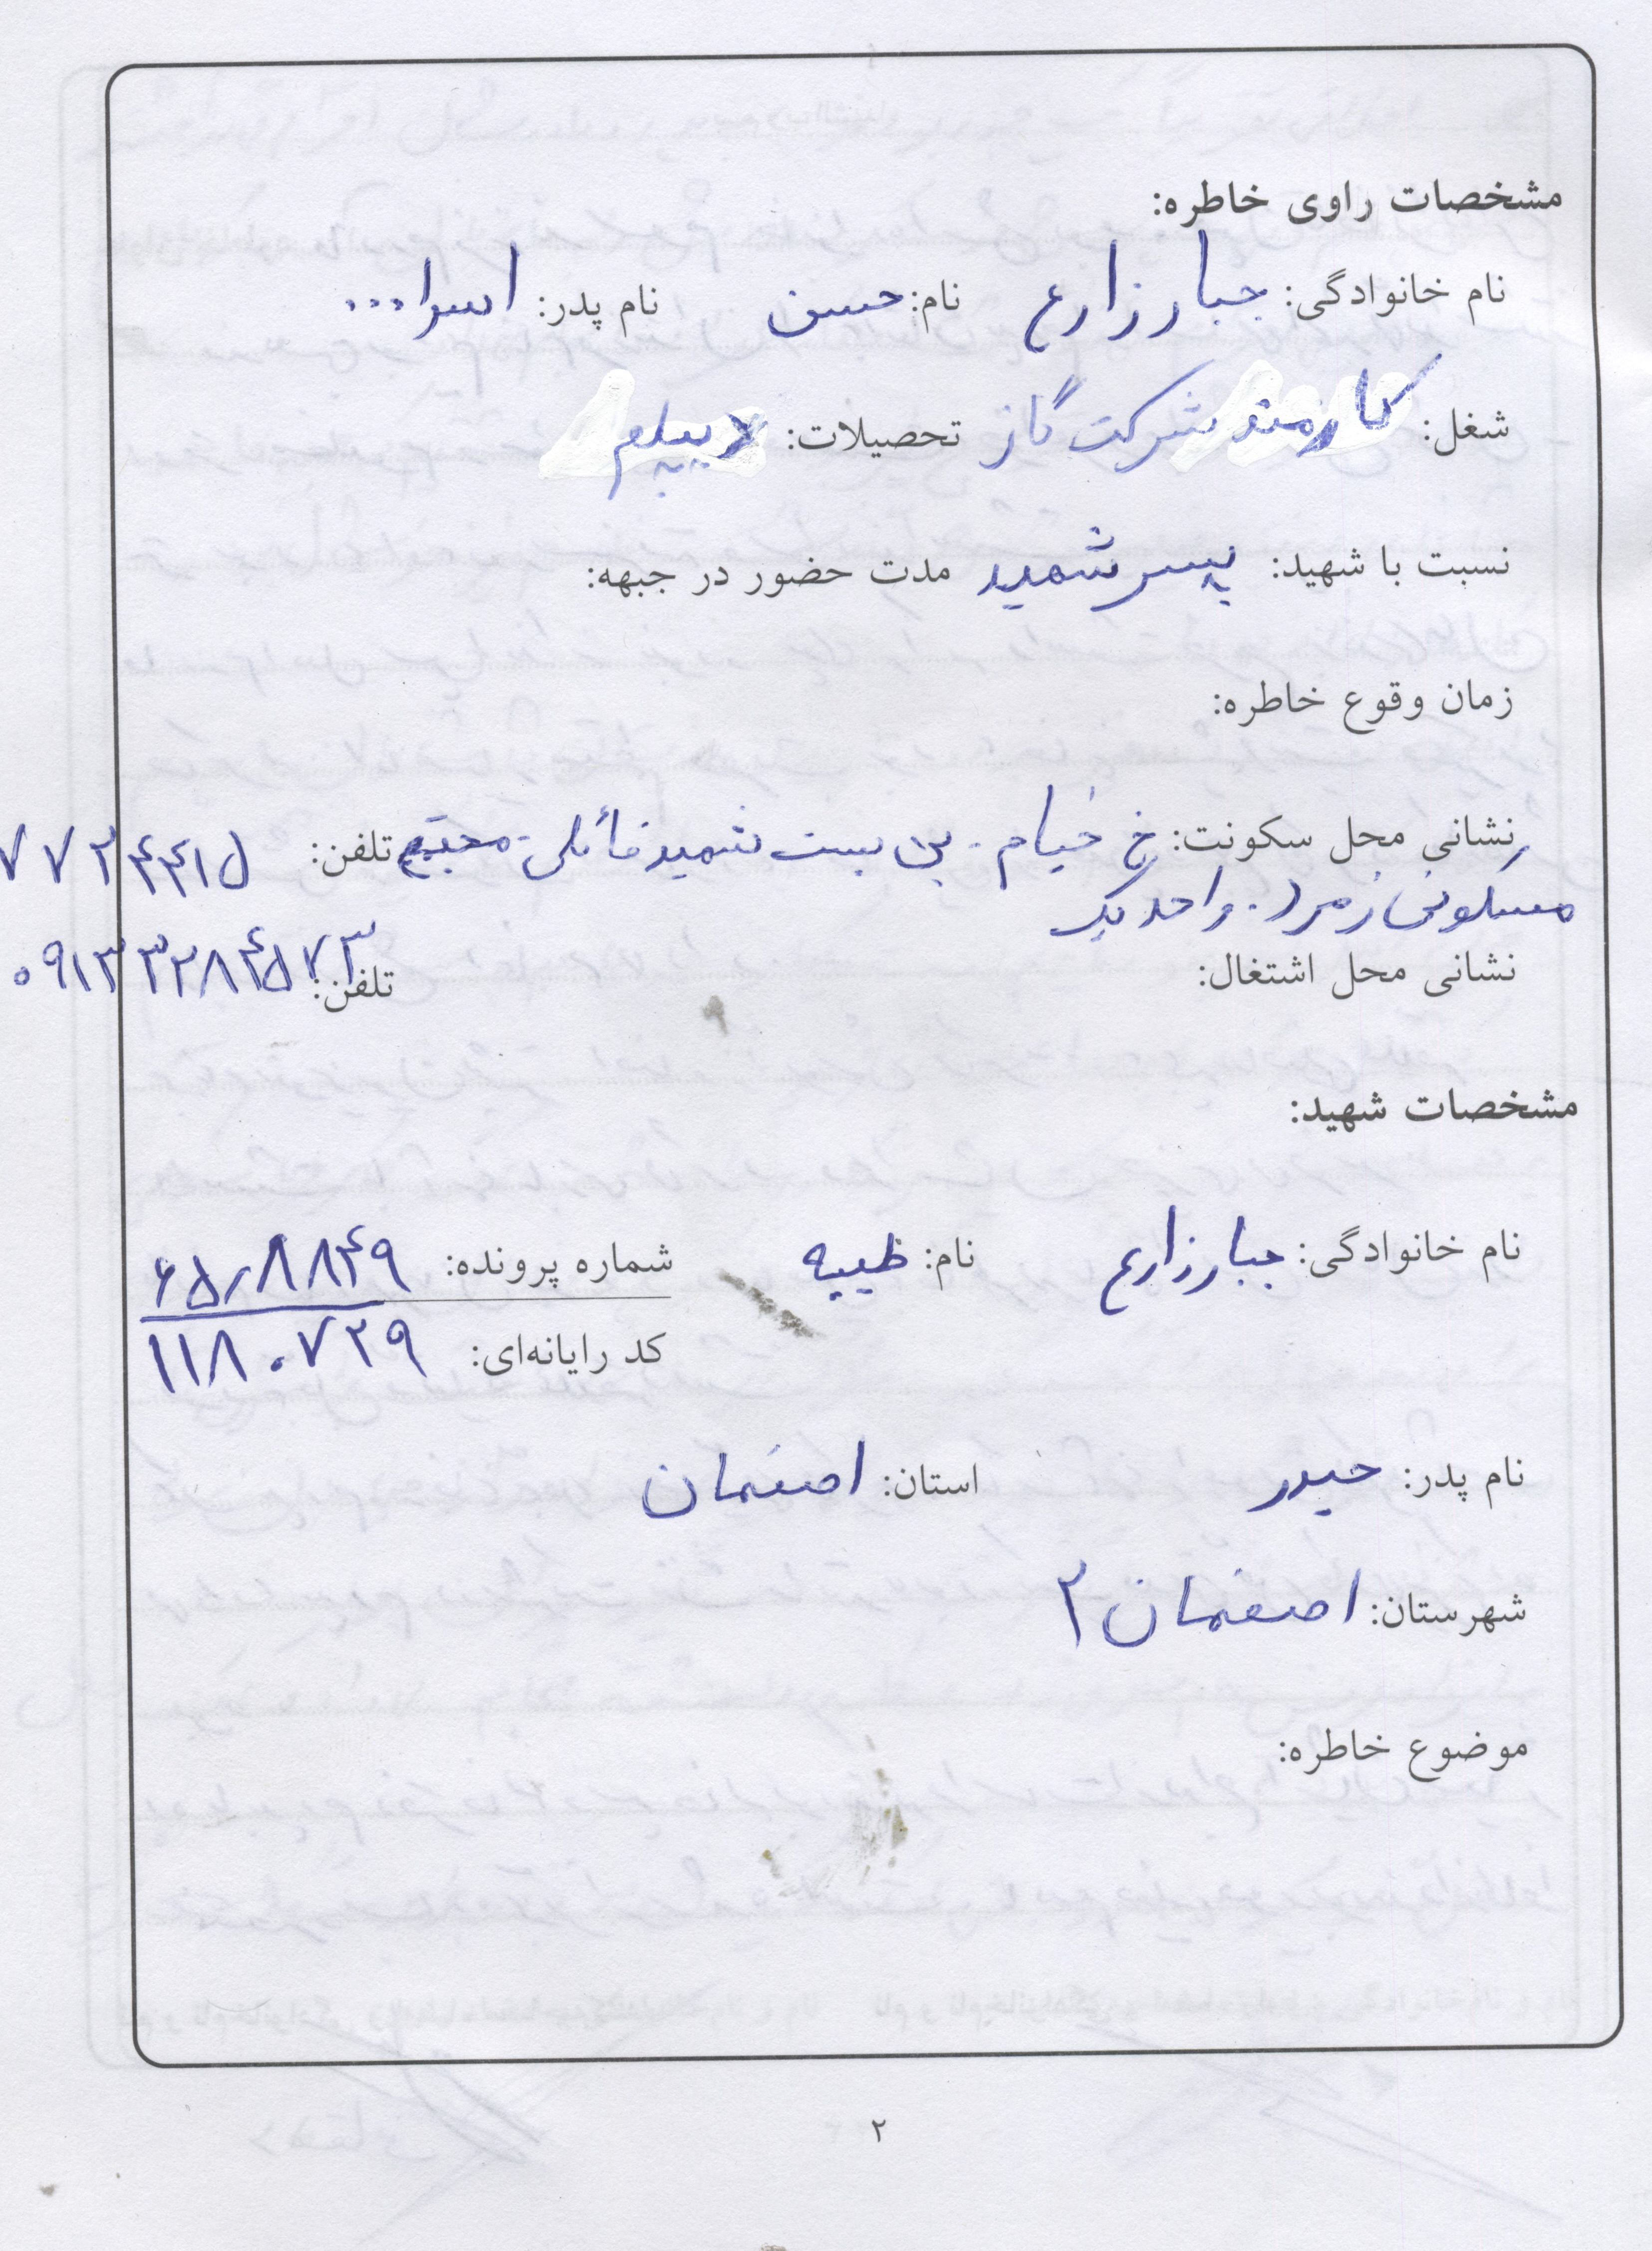 مشخصات راوی خاطره:
نام خانوادگی: جبار زارع نام: حسن نام پدر: اسدا...
شغل: کارمند شرکت گاز تحصیلات: دیپلم
نسبت با شهید: پسر شهید مدت حضور در جبهه:
زمان وقوع خاطره:
نشانی محل سکونت: خ خیام - بن بست شهید - مجتمع تلفن: ۷۷۲۴۴۱۵
مسکونی زمرد - واحد یک
نشانی محل اشتغال: تلفن: ۰۹۱۳۳۲۸۴۵۷۳
مشخصات شهید:
نام خانوادگی: جبارزارع نام: طیبه شماره پرونده: ۶۵۰۸۸۴۹
کد رایانه‌ای: ۱۱۸۰۷۲۹
نام پدر: حیدر استان: اصفهان
شهرستان: اصفهان ۲
موضوع خاطره:
۲